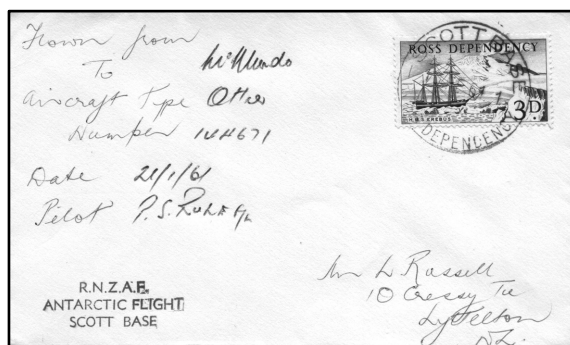 Flown from
To McMurdo
Aircraft Type Otter
Number 144671
Date 21/1/61
Pilot P.S. Rule F/L
R.N.Z.A.F.
ANTARCTIC FLIGHT
SCOTT BASE
SCOTT BASE
ROSS DEPENDENCY
H.M.S. EREBUS
3D.
DEPENDENCY
Mr L Russell
10 Cressy Tce
Lyttelton
NZ.